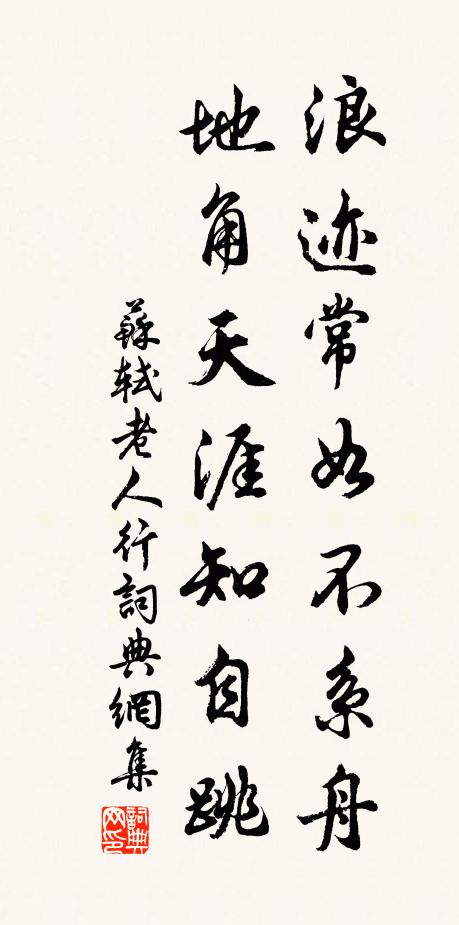 浪迹常如不系舟
地角天涯知自跳
蘇軾老人行詞典網集
詞典网印